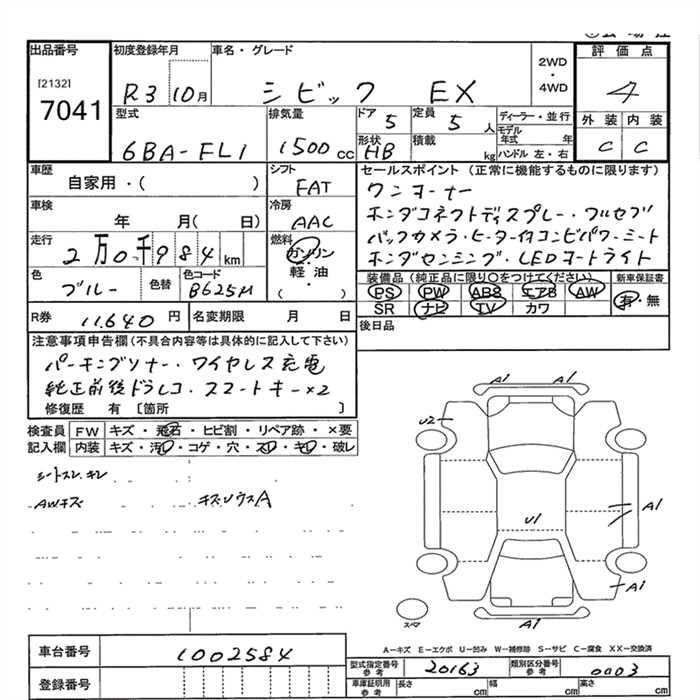 出品番号
[2132]
7041
初度登録年月
R3 10月
車名・グレード
シビック EX
2WD
・
4WD
評価点
4
外装 内装
C C
型式
6BA-FL1
排気量
1500 cc
ドア
5
定員
5 人
形状
HB
積載
kg
ディーラー・並行
モデル年式 年
ハンドル 左・右
車歴
自家用・( )
シフト
FAT
車検
年 月( 日)
冷房
AAC
走行
2万0千984km
燃料
ガソリン
・
軽油
( ・ )
色
ブルー
色替
色コード
B625M
R券
11,640 円
名変期限 月 日
セールスポイント(正常に機能するものに限ります)
ワンオーナー
ホンダコネクトディスプレー・フルセグ
バックカメラ・ヒーター付コンビパワーシート
ホンダセンシング・LEDヘッドライト
装備品(純正品に限り○をつけてください)
PS PW ABS エアB AW
SR ナビ TV カワ
新車保証書
有・無
後日品
注意事項申告欄(不具合内容等は具体的に記入して下さい)
パーキングソナー・ワイヤレス充電
純正前後ドラレコ・スマートキー×2
修復歴 有 [箇所 ]
検査員記入欄
FW キズ・飛石・ヒビ割・リペア跡・×要
内装 キズ・汚れ・コゲ・穴・スレ・キレ・破レ
シートスレ・キレ
AWキズ キズ・ソウスA
A1 A1
U2
A1
U1
A1
A1
スペア
A－キズ E－エクボ U－凹み W－補修跡 S－サビ C－腐食 XX－交換済
車台番号
1002584
登録番号
型式指定番号
参考
20163
類別区分番号
参考
0003
車庫証明用
参考
長さ cm 幅 cm 高さ cm